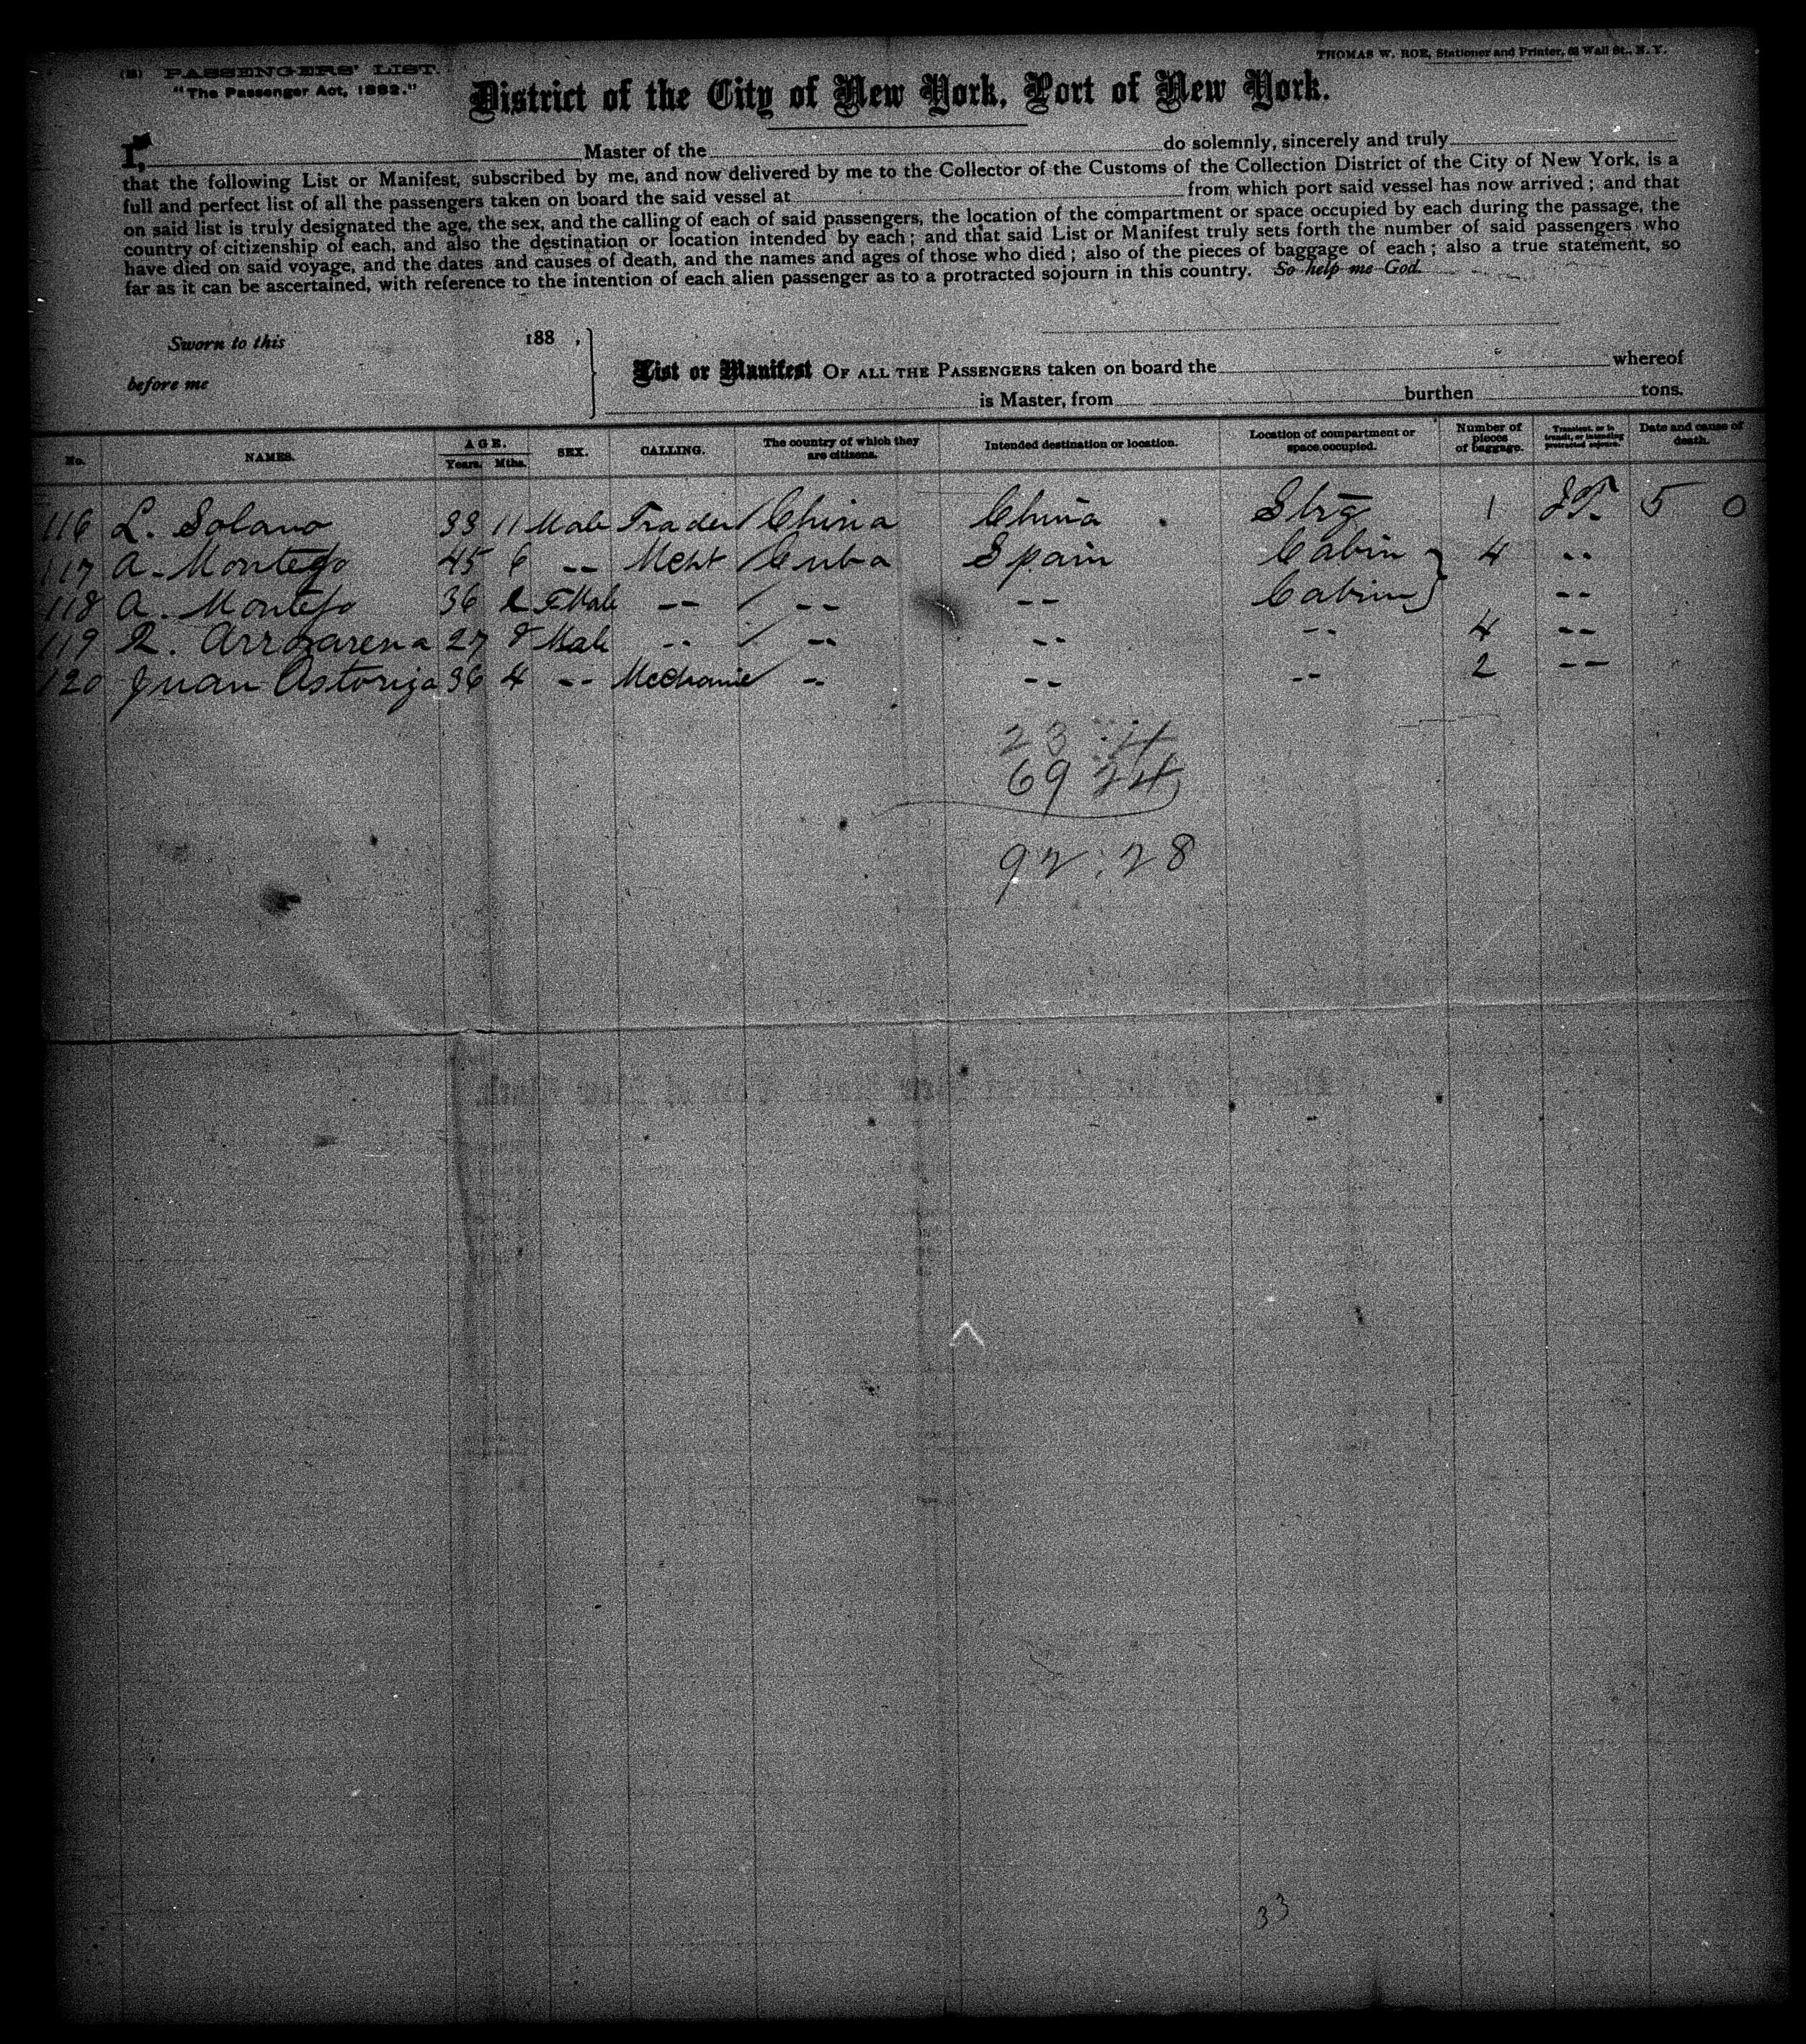 (B) PASSENGERS' LIST.
"The Passenger Act, 1882."
THOMAS W. ROE, Stationer and Printer, 63 Wall St., N. Y.
District of the City of New York, Port of New York.
I, Master of the do solemnly, sincerely and truly
that the following List or Manifest, subscribed by me, and now delivered by me to the Collector of the Customs of the Collection District of the City of New York, is a
full and perfect list of all the passengers taken on board the said vessel at from which port said vessel has now arrived; and that
on said list is truly designated the age, the sex, and the calling of each of said passengers, the location of the compartment or space occupied by each during the passage, the
country of citizenship of each, and also the destination or location intended by each; and that said List or Manifest truly sets forth the number of said passengers who
have died on said voyage, and the dates and causes of death, and the names and ages of those who died; also of the pieces of baggage of each; also a true statement, so
far as it can be ascertained, with reference to the intention of each alien passenger as to a protracted sojourn in this country. So help me God.
Sworn to this 188 ,
before me
List or Manifest OF ALL THE PASSENGERS taken on board the whereof
is Master, from burthen tons.
No. NAMES. AGE. Years. Mths. SEX. CALLING. The country of which they are citizens. Intended destination or location. Location of compartment or space occupied. Number of pieces of baggage. Transient, or in transit, or intending protracted sojourn. Date and cause of death.
116 L. Solano 33 11 Male Trader China China Strg 1 5 0
117 A. Montejo 45 6 -- Mcht Cuba Spain Cabin 4 --
118 A. Montejo 36 2 FMale -- -- -- Cabin --
119 R. Arrozarena 27 8 Male -- -- -- -- 4 --
120 Juan Astoriza 36 4 -- Mechanic -- -- -- 2 --
23 : 4
69 24
92 : 28
33